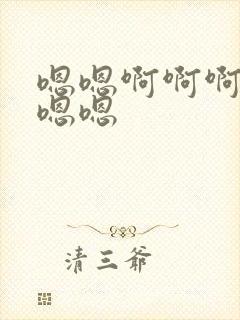 嗯嗯啊啊啊
嗯嗯
清三爷